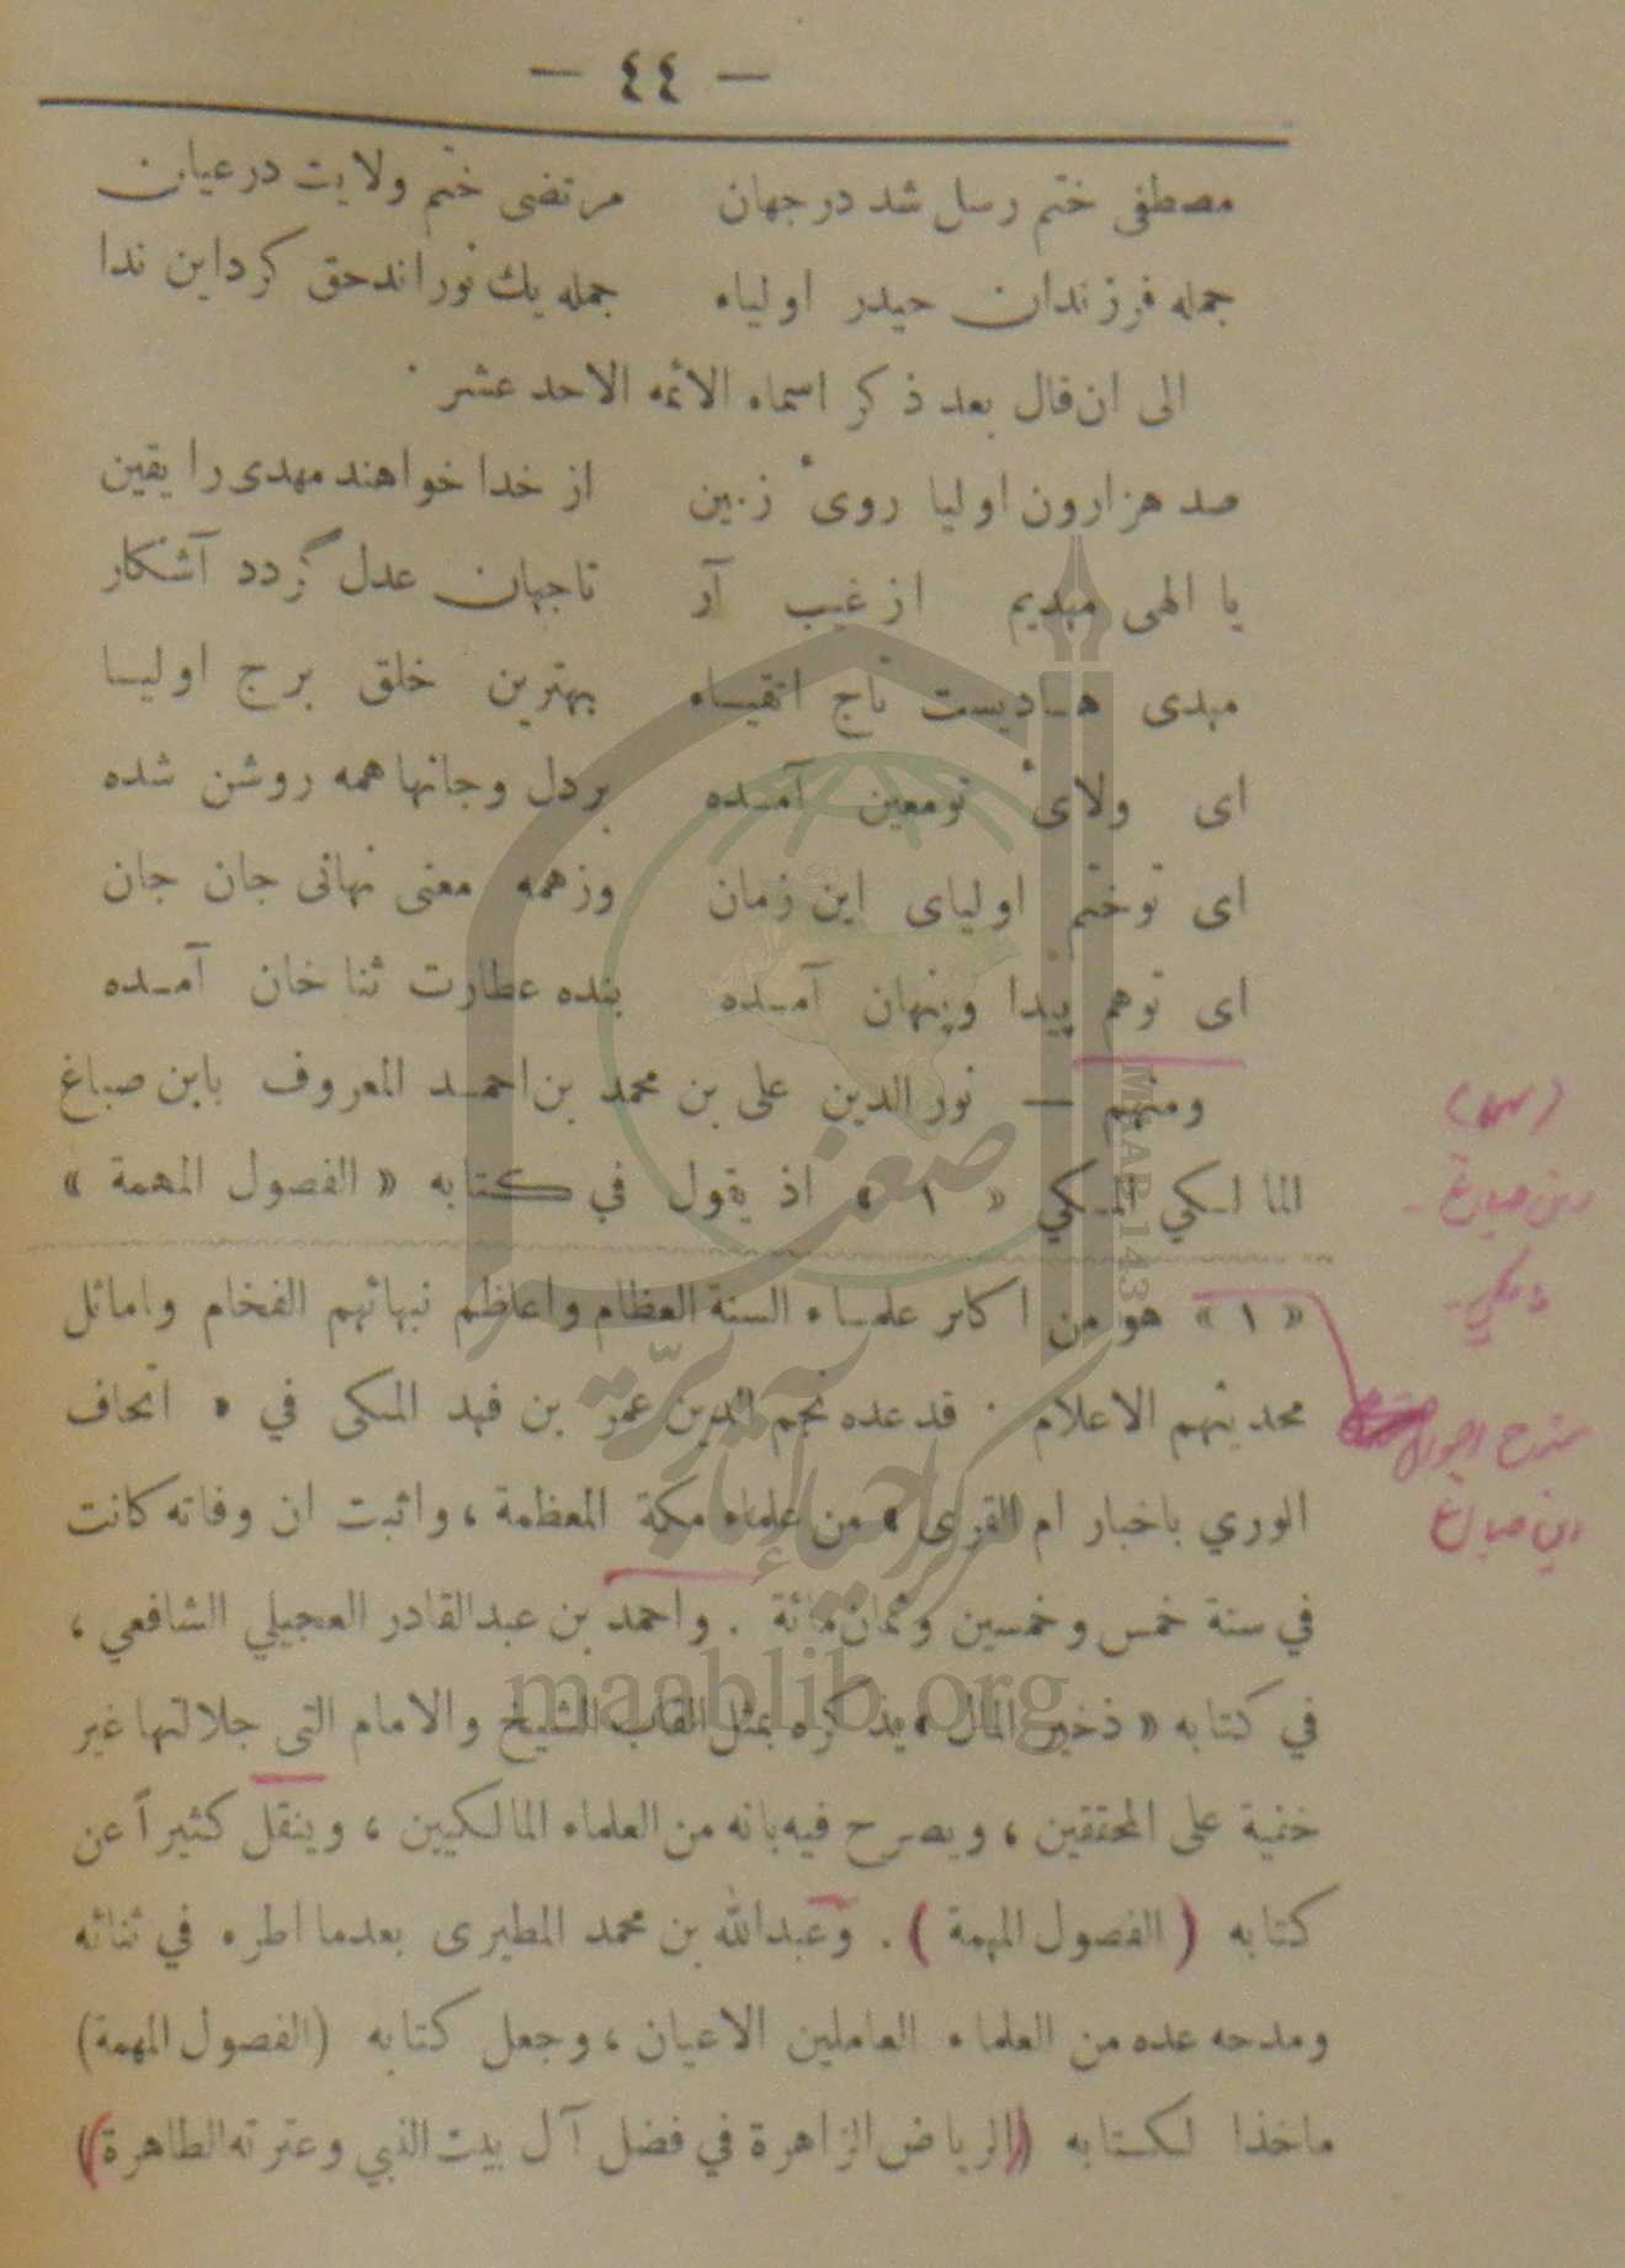 — ٤٤ —
مصطفى ختم رسل شد در جهان مرتضى ختم ولايت در عيان
جمله فرزندان حيدر اولياء جمله يك نور اند حق كرد اين ندا
الى ان قال بعد ذكر اسماء الائمه الاحد عشر .
صد هزارون اوليا روى زمين از خدا خواهند مهدى را يقين
يا الهى مهديم از غيب آر تا جهان عدل گردد آشكار
مهدى هاديست تاج اتقياء بهترين خلق برج اوليا
اى ولاى تو معين آمده بر دل و جانها همه روشن شده
اى تو ختم اولياى اين زمان وز همه معنى نهانى جان جان
اى تو هم پيدا و پنهان آمده بنده عطارت ثنا خان آمده
ومنهم — نور الدين على بن محمد بن احمد المعروف بابن صباغ
المالكي المكي « ١ » اذ يقول في كتابه « الفصول المهمة »
« ١ » هو من اكابر علماء السنة العظام واعاظم نبهائهم الفخام واماثل
محديثهم الاعلام . قد عده نجم الدين عمر بن فهد المكى في « اتحاف
الوري باخبار ام القرى » من علماء مكة المعظمة ، واثبت ان وفاته كانت
في سنة خمس وخمسين وثمانمائة . واحمد بن عبد القادر العجيلي الشافعي ،
في كتابه « ذخيرة المال » يذكره بمثل القاب الشيخ والامام التى جلالتها غير
خفية على المحققين ، ويصرح فيه بانه من العلماء المالكيين ، وينقل كثيراً عن
كتابه ( الفصول المهمة ) . وعبدالله بن محمد المطيرى بعدما اطره في ثنائه
ومدحه عده من العلماء العاملين الاعيان ، وجعل كتابه (الفصول المهمة)
ماخذا لكتابه (الرياض الزاهرة في فضل آل بيت النبي وعترته الطاهرة)
ابن صباغ
مكي
شرح احوال
ابن صباغ
MAAB 143
maablib.org